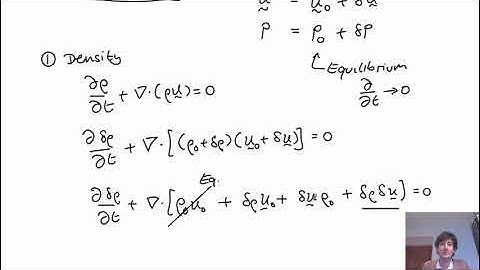 u = u₀ + δu
ρ = ρ₀ + δρ
Equilibrium
∂/∂t → 0
① Density
∂ρ/∂t + ∇·(ρu) = 0
∂δρ/∂t + ∇·[(ρ₀+δρ)(u₀+δu)] = 0
Eq.
∂δρ/∂t + ∇·[ρ₀u₀ + δρu₀ + δuρ₀ + δρδu] = 0